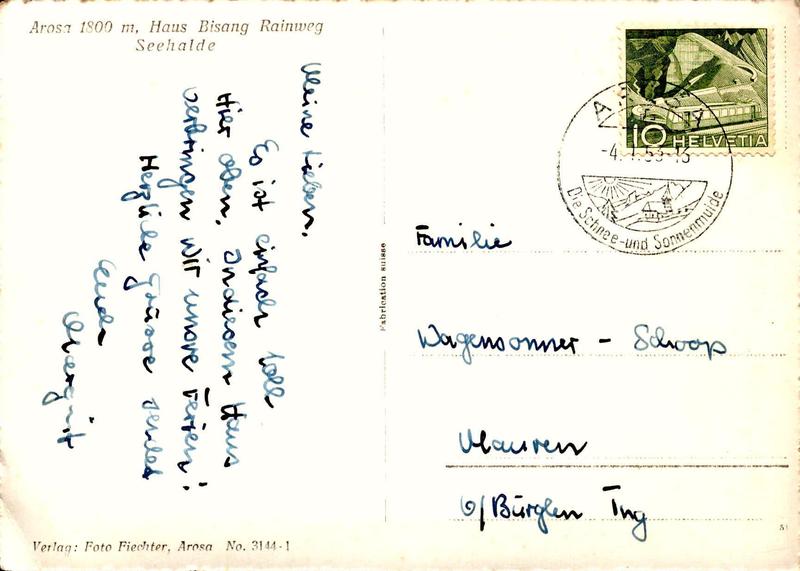 Arosa 1800 m, Haus Bisang Rainweg
Seehalde
Meine Lieben.
Es ist einfach toll
Hier oben. In diesem Haus
verbringen wir unsre Ferien!
Herzliche Grüsse sendet
Euch
Margrit
Verlag: Foto Fiechter, Arosa No. 3144-1
Fabrication suisse
10 HELVETIA
AROSA
Die Schnee-und Sonnenmulde
Familie
Wagensonner - Schoop
Mauren
b/Bürglen Trg